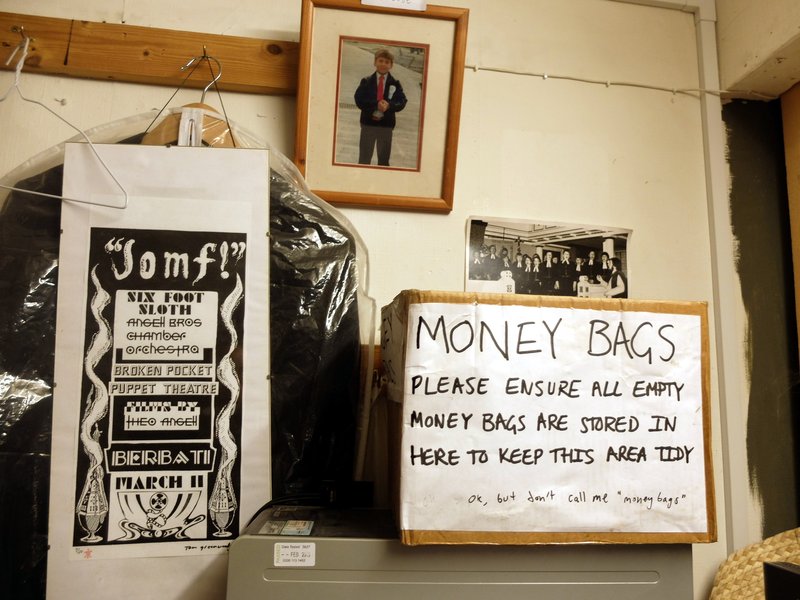 "Jomf!"
SIX FOOT
SLOTH
ANGELL BROS
CHAMBER
ORCHESTRA
BROKEN POCKET
PUPPET THEATRE
FILMS BY
THEO ANGELL
BERBATI
MARCH 11
MONEY BAGS
PLEASE ENSURE ALL EMPTY
MONEY BAGS ARE STORED IN
HERE TO KEEP THIS AREA TIDY
Ok, but don't call me "money bags"